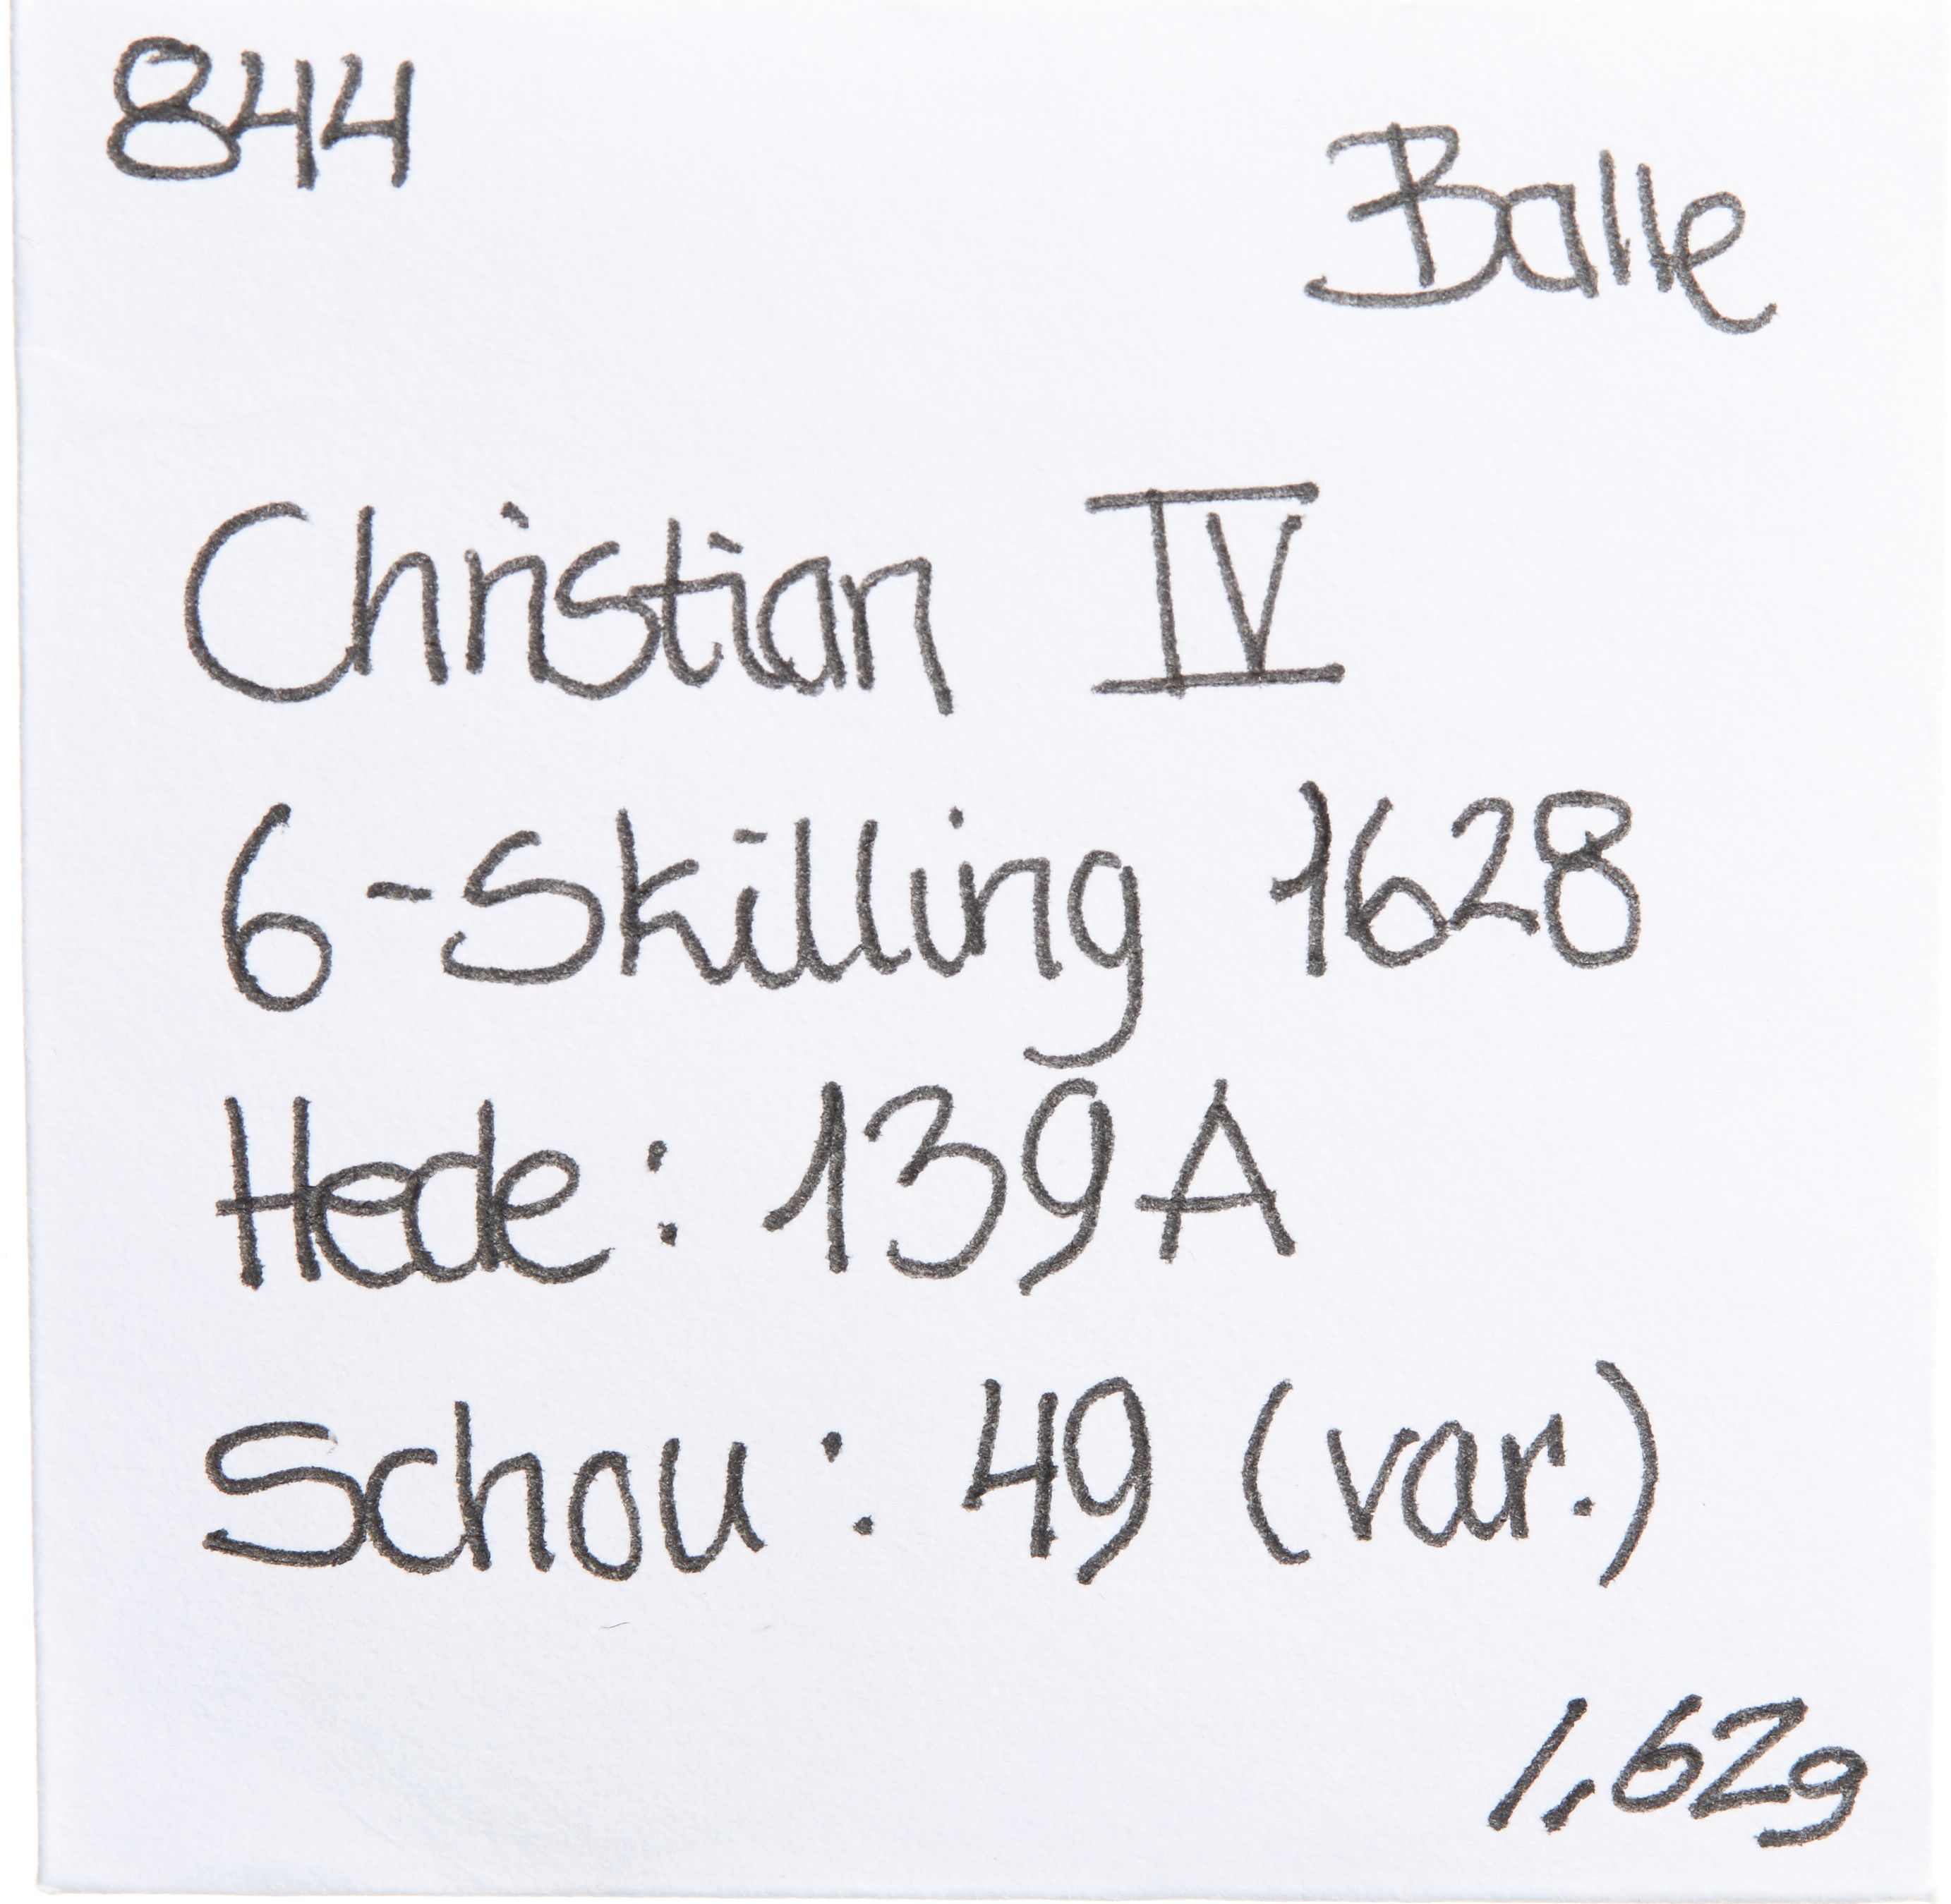 844
Balle
Christian IV
6-Skilling 1628
Hede: 139A
Schou: 49 (var.)
1,62g